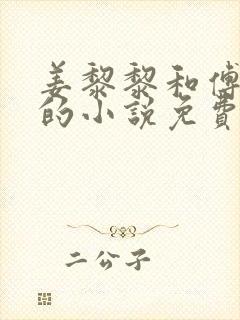 姜黎黎和傅
的小说免费
二公子